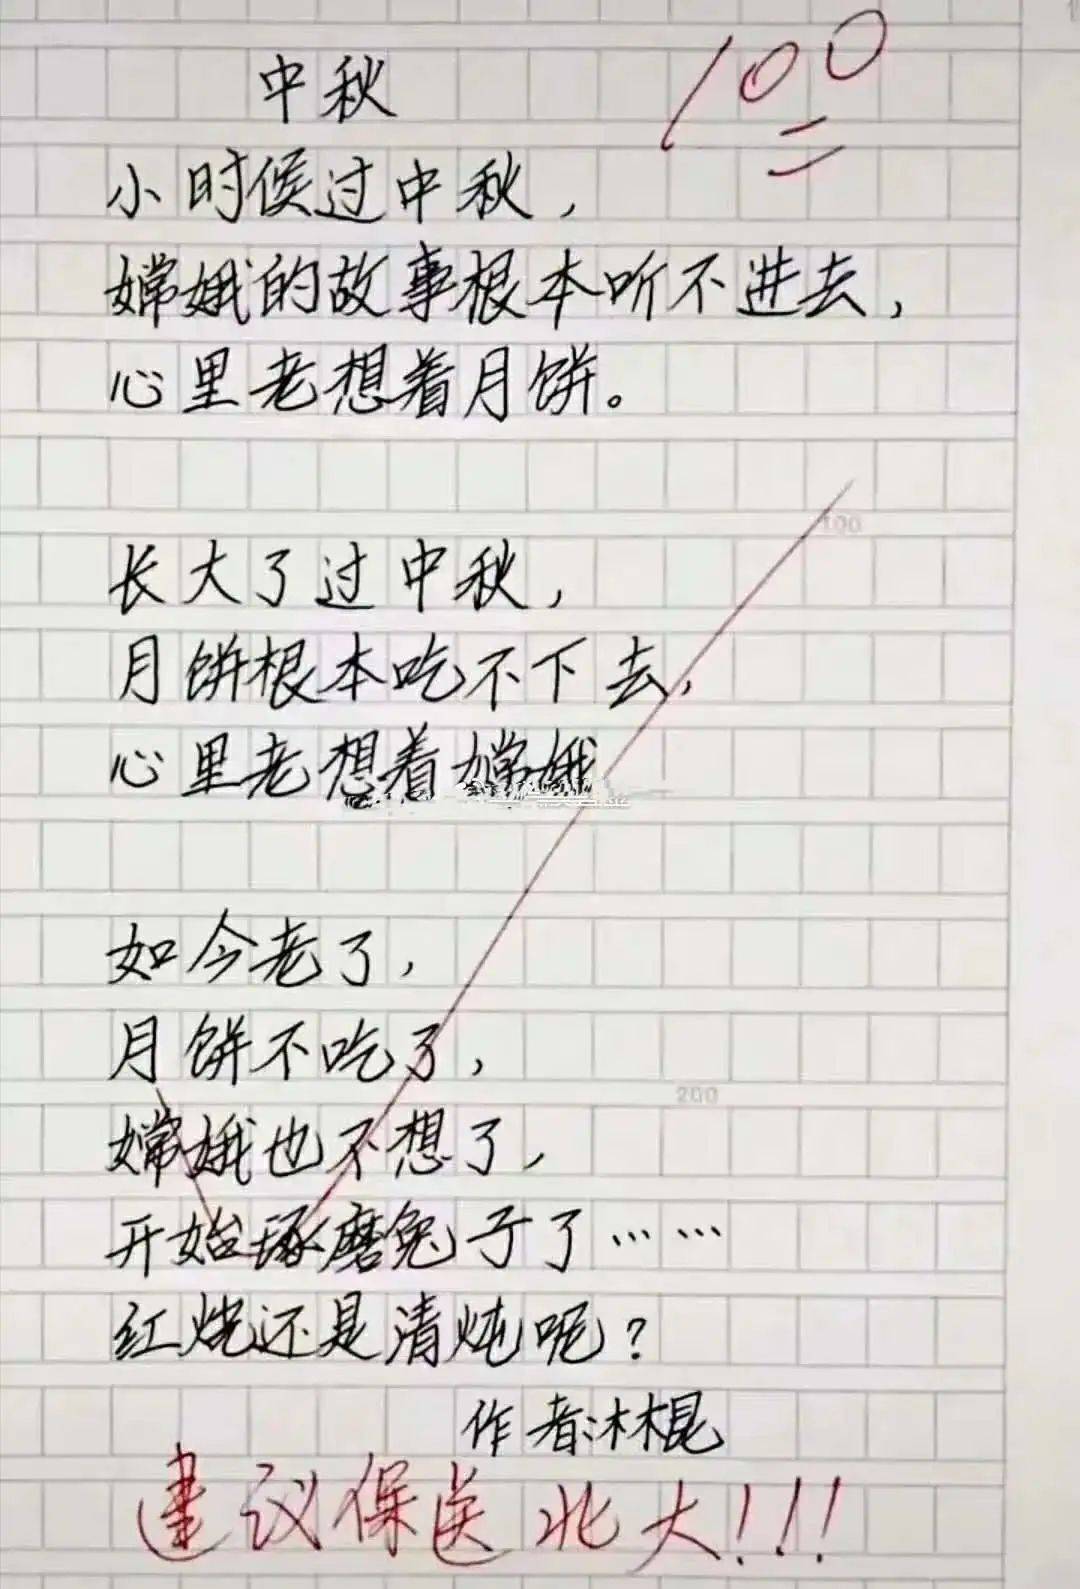 中秋
100
小时候过中秋,
嫦娥的故事根本听不进去,
心里老想着月饼。
100
长大了过中秋,
月饼根本吃不下去,
心里老想着嫦娥
如今老了,
月饼不吃了,
200
嫦娥也不想了,
开始琢磨兔子了……
红烧还是清炖呢?
作者:木棍
建议保送北大!!!